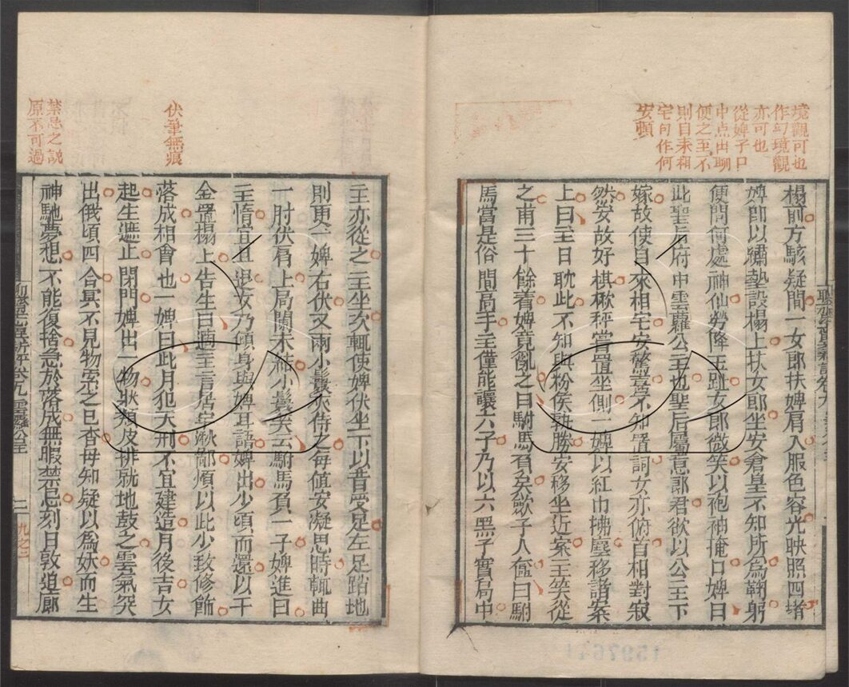 境觀可也
作句境觀
亦可也
從婢子口
中点出聊
便之至不
則自来相
宅句作何
安頓
榻前方駭疑間一女郎扶婢肩入服色容光映照四堵
婢即以繡墊設榻上扶女郎坐安倉皇不知所為鞠躬
便問何處神仙勞降玉趾女郎微笑以袍袖掩口婢曰
此聖后府中雲蘿公主也聖后屬意郎君欲以公主下
嫁故使自來相宅安驚喜不知置詞女亦俯首相對寂
然安故好棋楸枰嘗置坐側一婢以紅巾拂塵移諸案
上曰主日耽此不知與粉侯孰勝安移坐近案主笑從
之甫三十餘着婢竟亂之曰駙馬負矣斂子入盒曰駙
馬當是俗間高手主僅能讓六子乃以六黑子實局中
伏筆無痕
禁忌之說
原不可過
主亦從之主坐次輒使婢伏坐下以背受足左足踏地
則更一婢右伏又兩小鬟夾侍之每值安凝思時輒曲
一肘伏肩上局闌未結小鬟笑云駙馬負一子婢進曰
主惰宜且退女乃傾身與婢耳語婢出少頃而還以千
金置榻上告生曰適主言居宅湫鄙煩以此少致修飾
落成相會也一婢曰此月犯天刑不宜建造月後吉女
起生遮止閉門婢出一物狀類皮排就地鼓之雲氣突
出俄頃四合冥不見物索之已杳母知疑以為妖而生
神馳夢想不能復捨急於落成無暇禁忌刻日敦迫廊